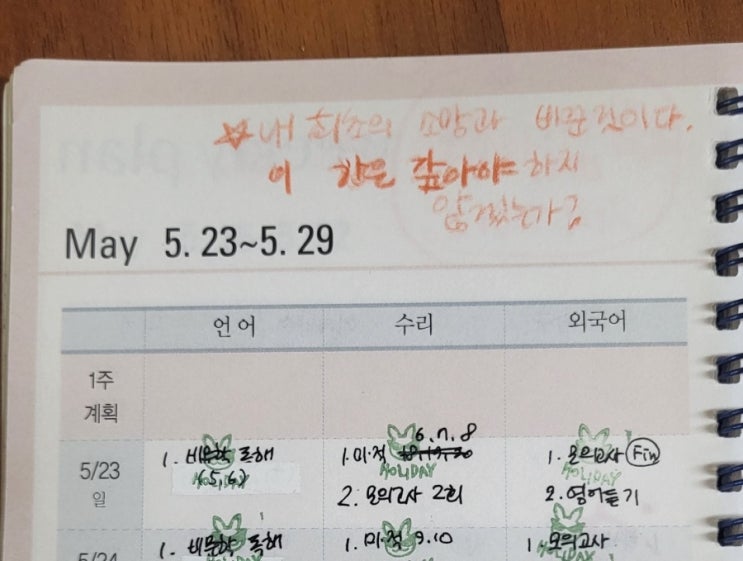 ☆ 내 최소의 소망과 바란 것이다.
이 한은 갚아야 하지
않겠는가?
May 5. 23~5. 29
언어 수리 외국어
1주
계획
6.7.8
5/23 1. 비문학 독해 1. 미·적 1. 모의고사 Fin
HOLIDAY HOLIDAY HOLIDAY
일 (5,6) 2. 모의고사 2회 2. 영어듣기
5/24 1. 비문학 독해 1. 미·적 9.10 1 모의고사
HOLIDAY HOLIDAY